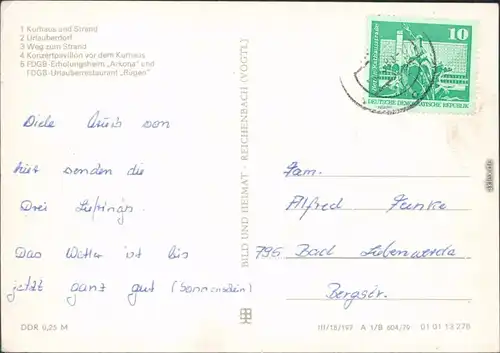 1 Kurhaus und Strand
2 Urlauberdorf
3 Weg zum Strand
4 Konzertpavillon vor dem Kurhaus
5 FDGB-Erholungsheim „Arkona" und
FDGB-Urlauberrestaurant „Rügen"
10
DEUTSCHE DEMOKRATISCHE REPUBLIK
BILD UND HEIMAT · REICHENBACH (VOGTL)
von
hier senden die
Drei
Das Wetter ist bis
jetzt ganz gut (Sonnenschein)
Fam.
Alfred
795 Bad Liebenwerda
Bergstr.
DDR 0,25 M
III/18/197 A 1/B 604/79 01 01 13 278